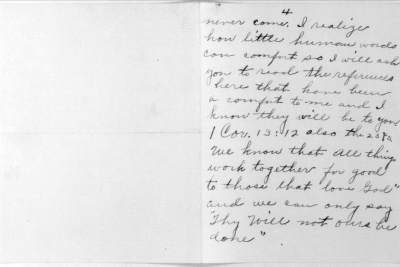 4
never come. I realize
how little human words
can comfort so I will ask
you to read the references
here that have been
a comfort to me and I
know they will be to you
1 Cor. 13:12 also the 23 Ps
We know that All things
work together for good
to those that love God"
and we can only say
"Thy Will not ours be
done"